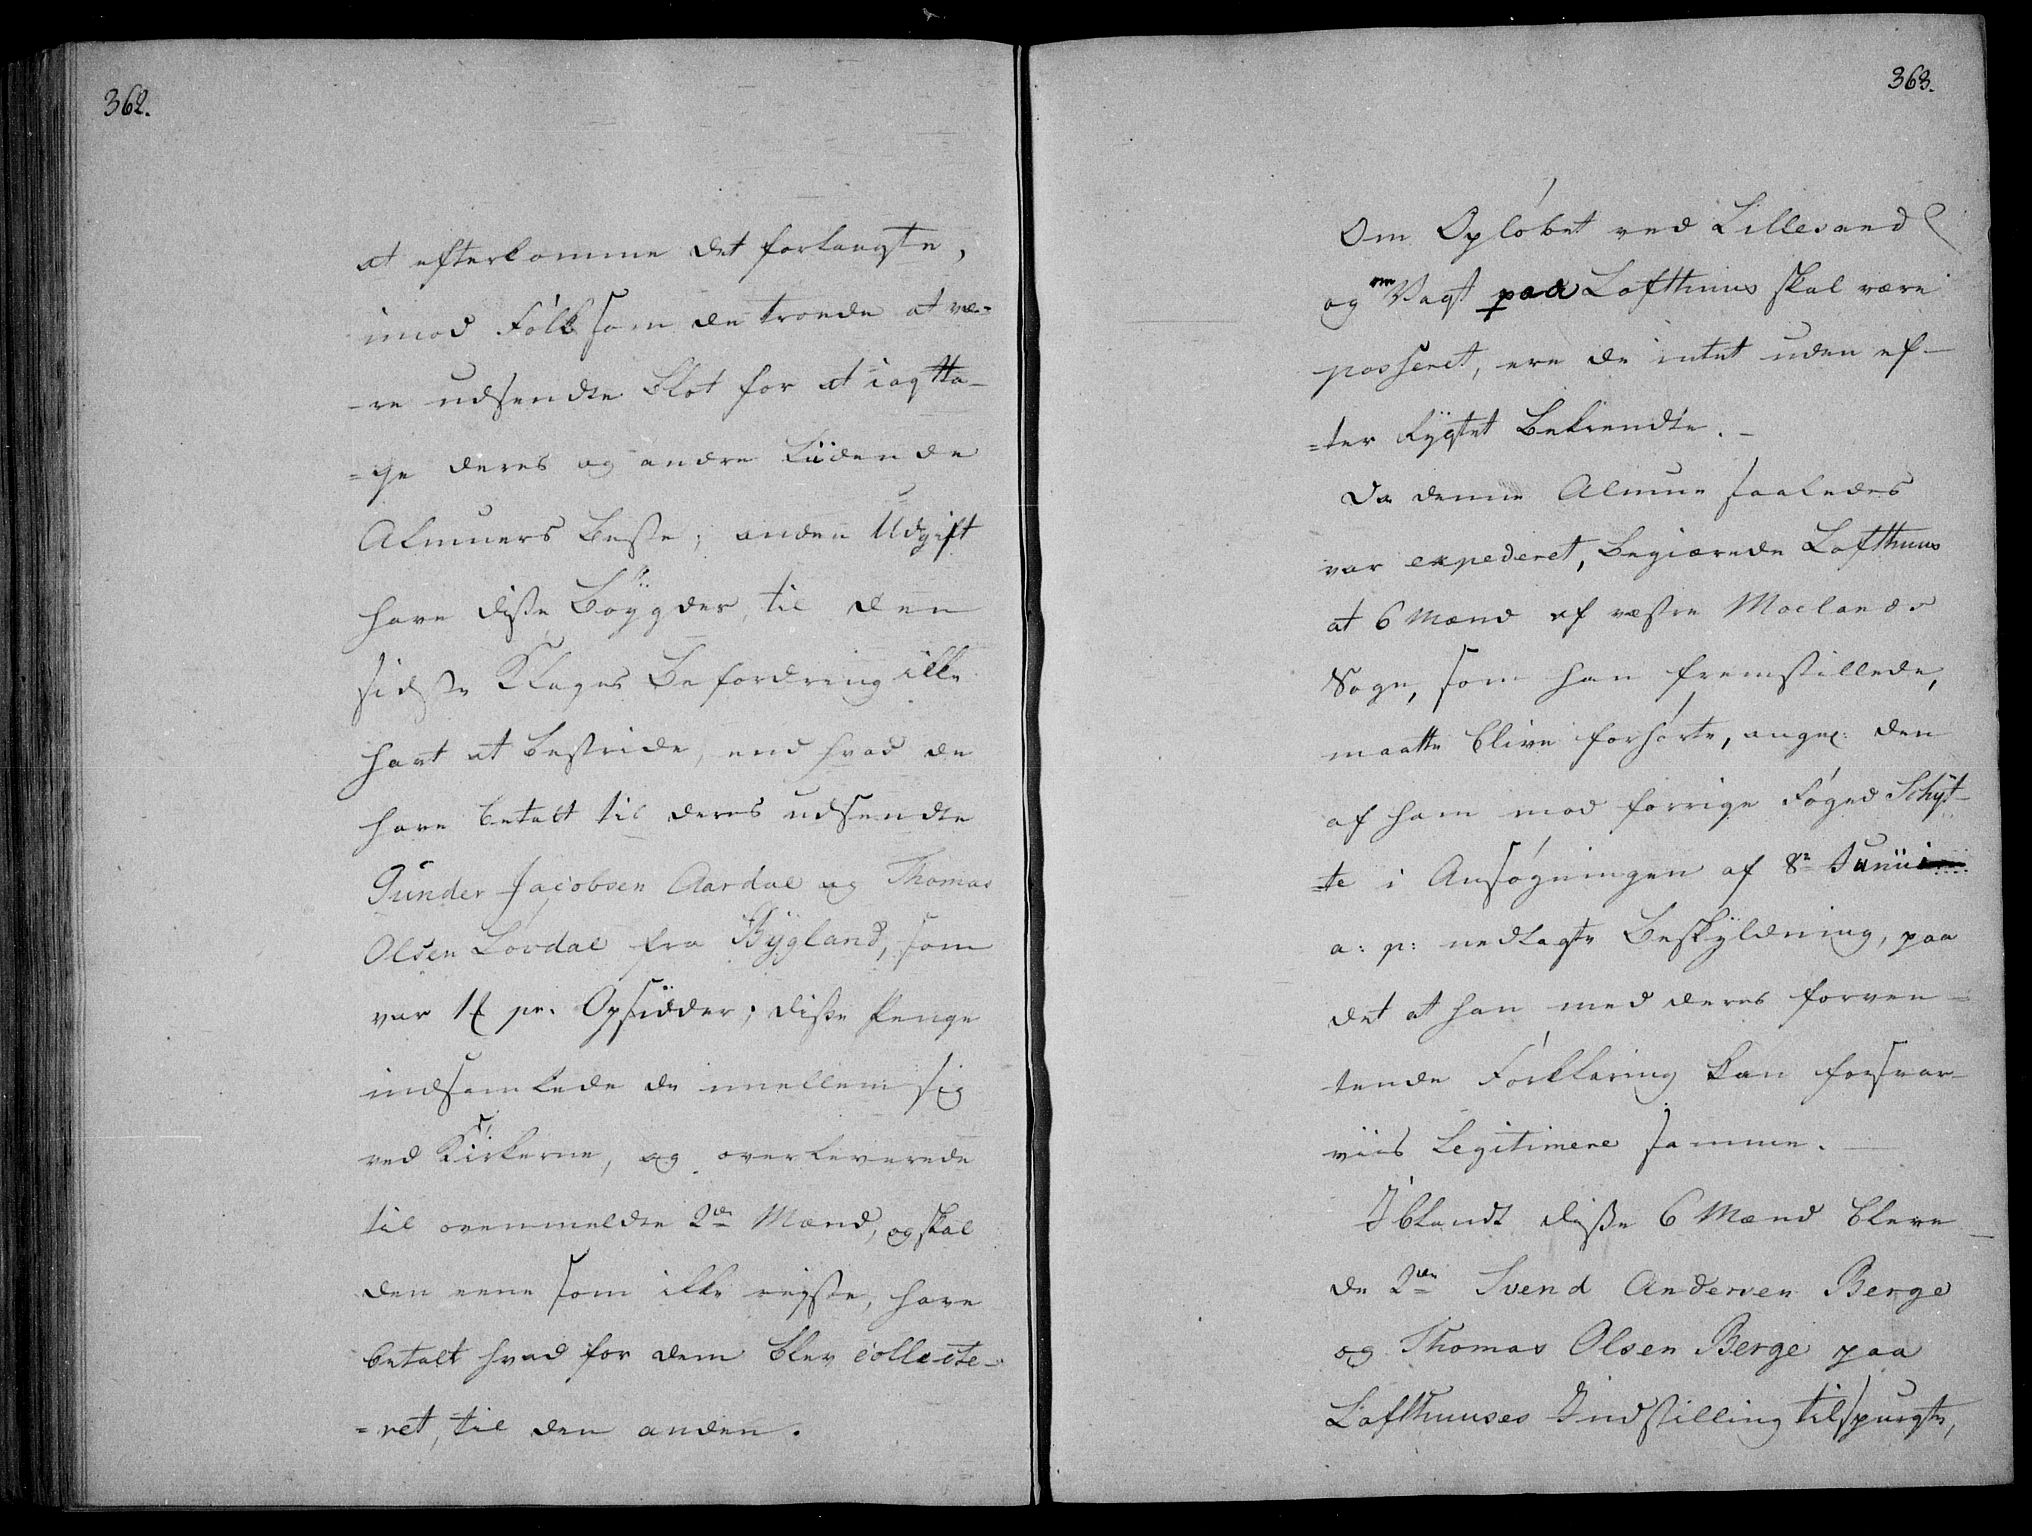 362.
at efterkomme det forlangte,
imod Folk som de troede at væ-
-re udsendte blot for at iagtta-
-ge deres og andre Liidende
Almuers Beste; anden Udgift
have disse Bøygder, til den
sidste Klages Befordring ikke
havt at bestride, end hvad de
have betalt til deres udsendte
Gunder Jacobsen Aardal og Thomas
Olsen Lovdal fra Bygland, som
var 1f pr. Opsidder; disse Penge
indsamlede de imellem sig
ved Kirkerne, og overleverede
til ovenmeldte 2de Mænd, og skal
den eene som ikke reyste, have
betalt hvad for dem blev collecte-
-ret, til den anden.
363.
Om Opløbet ved Lillesand
og om Vagt paa Lofthuus skal være
passeret, ere de intet uden ef-
-ter Rygtet bekiendte.-
Da denne Almue saaledes
var expederet, begiærede Lofthuus
at 6 Mænd af vestre Moelands
Sogn, som han fremstillede,
maatte blive forhørte, angl: den
af ham mod forrige Foged Schyt-
-te i Ansøgningen af 8de Junii
a: p: nedlagte Beskyldning, paa
det at han med deres forven-
tende Forklaring kan forsvar-
viis legitimere samme.-
Iblandt disse 6 Mænd bleve
de 2de Svend Andersen Berge
og Thomas Olsen Berge paa
Lofthuuses Indstilling tilspurgte,